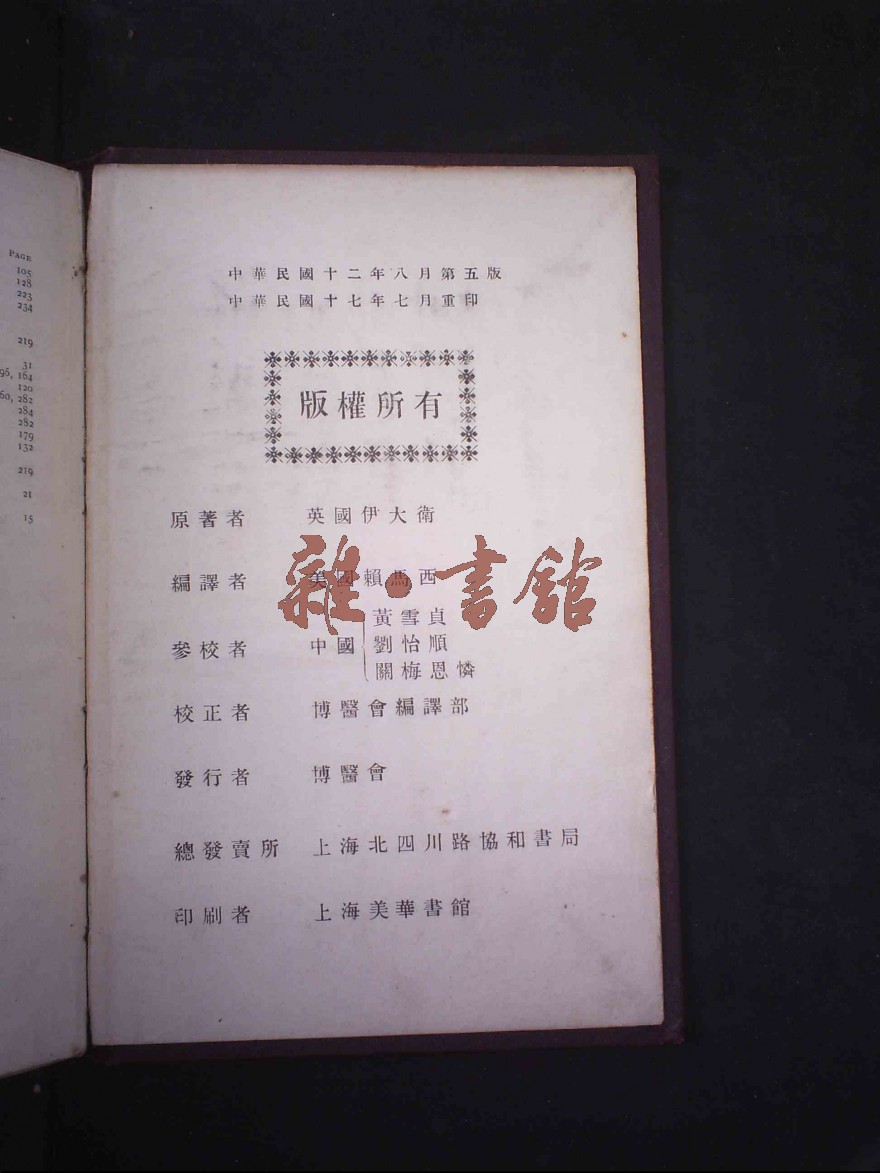 PAGE
105
128
223
234
219
31
96, 164
120
60, 282
284
282
179
132
219
21
15
中華民國十二年八月第五版
中華民國十七年七月重印
版權所有
原著者 英國伊大衛
編譯者 美國賴馬西
參校者 中國 黃雪貞
劉怡順
關梅恩憐
校正者 博醫會編譯部
發行者 博醫會
總發賣所 上海北四川路協和書局
印刷者 上海美華書館
雜·書館